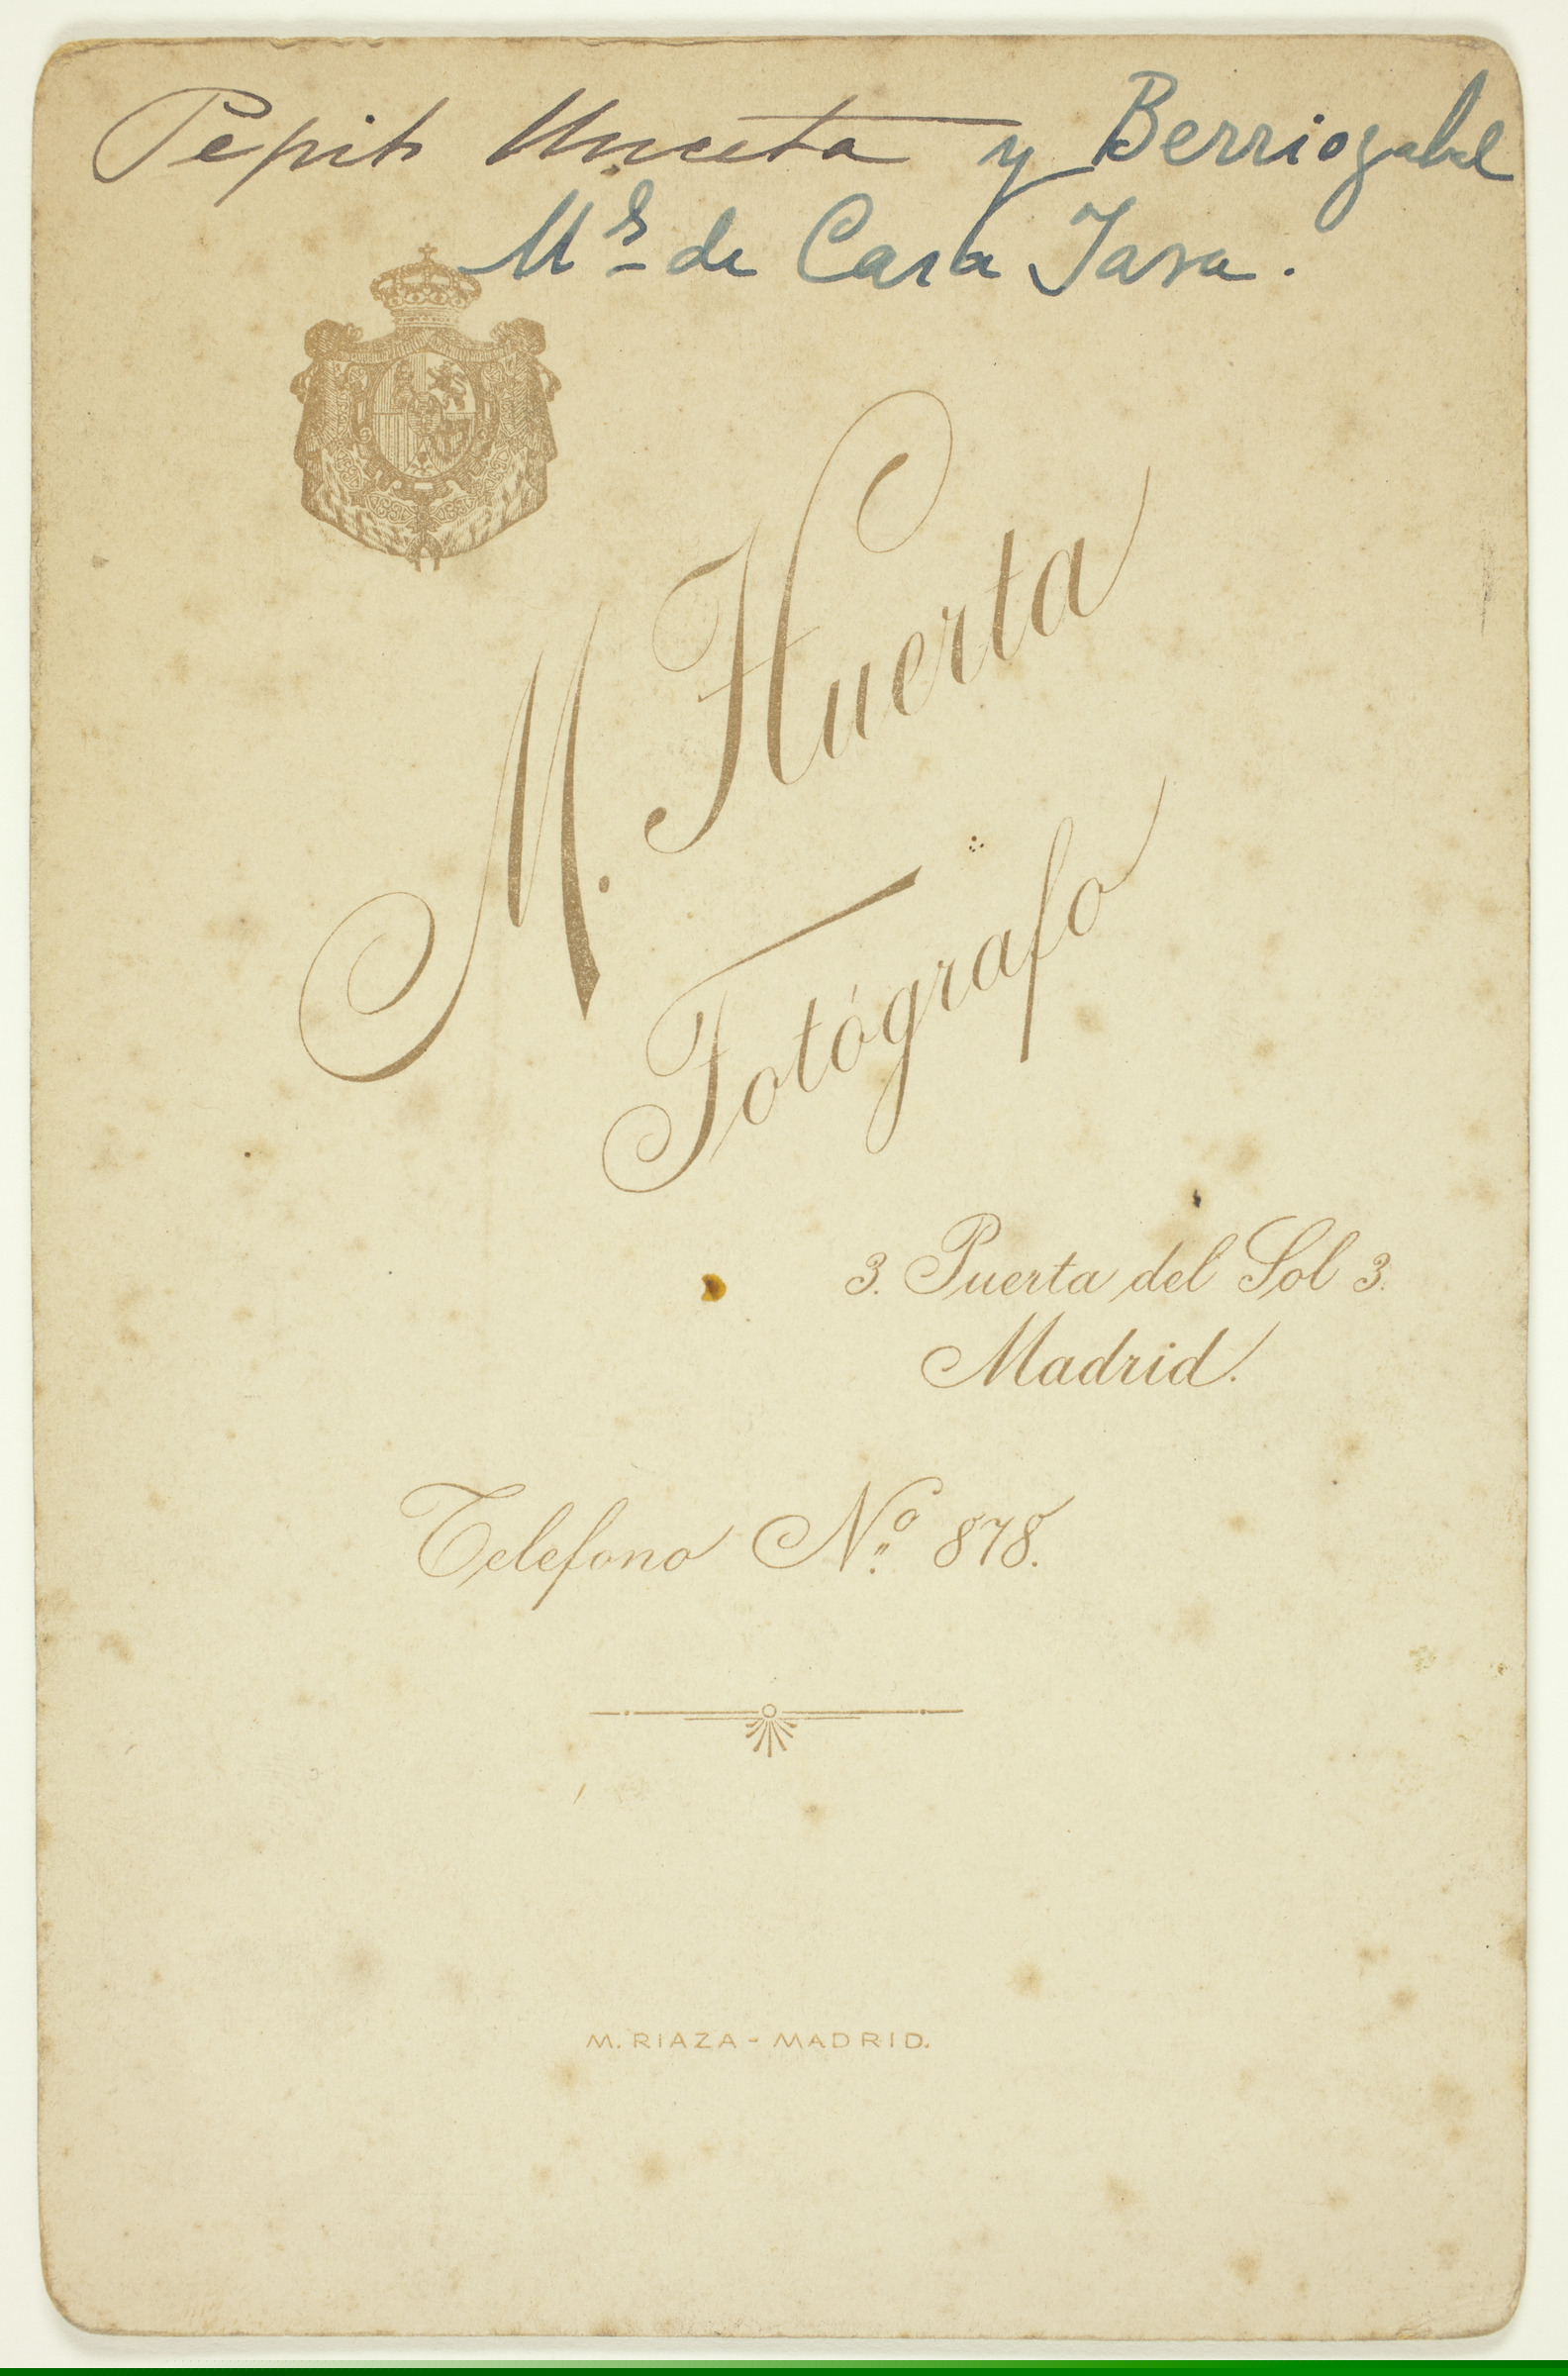 Pepito Unceta y Berriozabal
M.s de Casa Jara.
M. Huerta
Fotógrafo
3. Puerta del Sol 3.
Madrid.
Telefono No. 878.
M. RIAZA - MADRID.